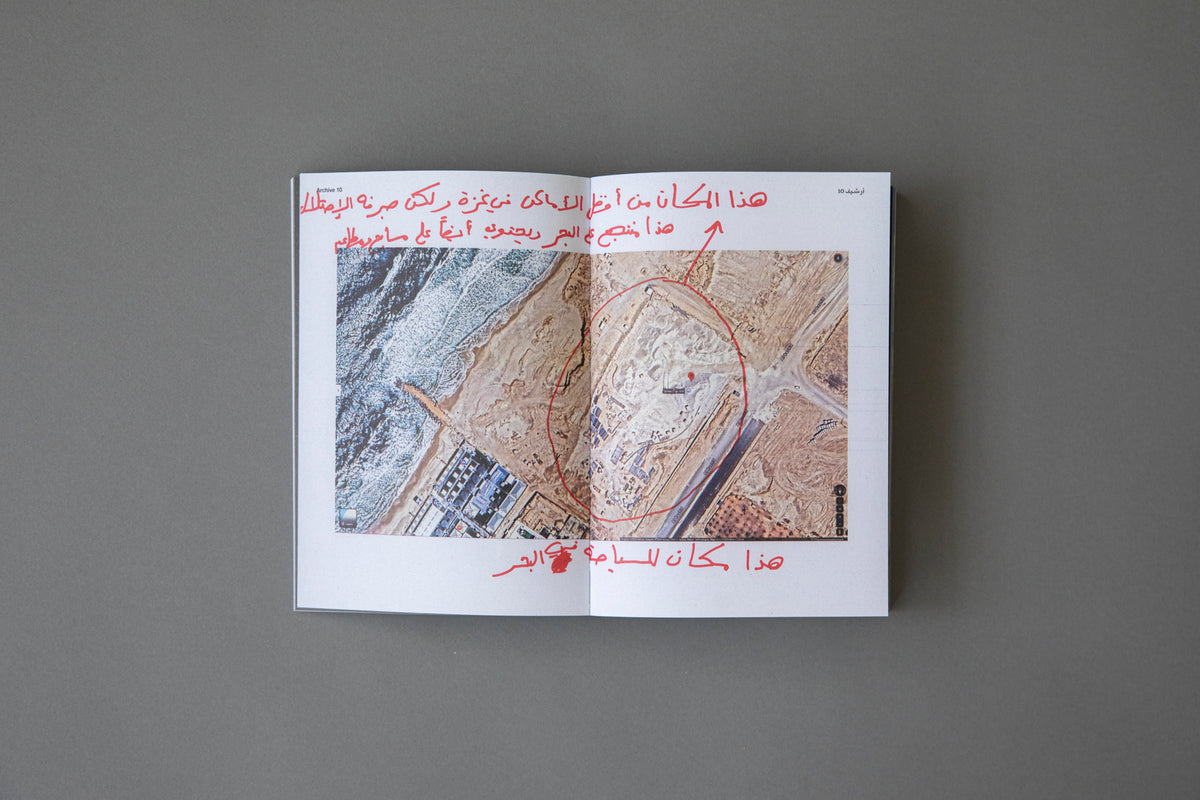 Archive 10
أرشيف 10
هذا المكان من أفضل الأماكن في غزة ولكن جرفه الإحتلال
هذا منتجع على البحر ويحتوي أيضاً على مسابح ومطاعم
هذا مكان للسياحة في البحر